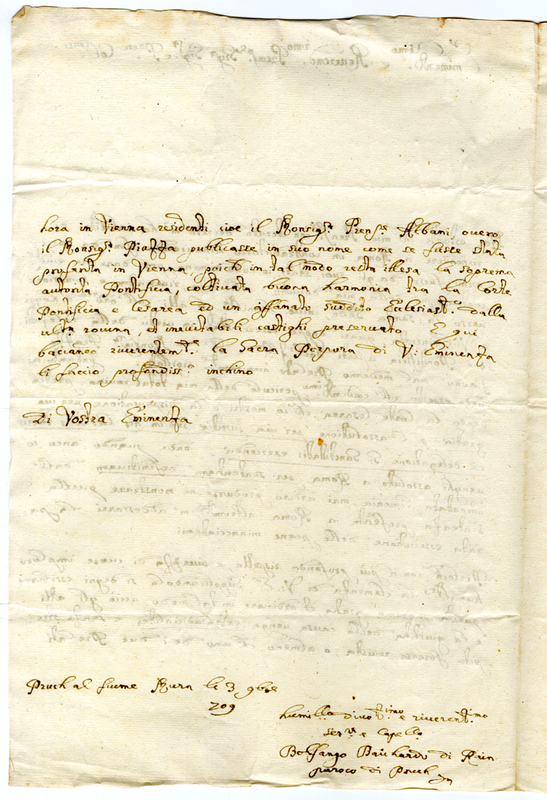 hora in Vienna residenti cioe il Monsig.r Pren.se Albani overo
il Monsig.r Piazza publicasse in suo nome come se fusse stata
in Vienna, poiche in tal modo resta illesa la soprema
autorità Pontificia, coltivata buona harmonia tra la Corte
Pontificia e Cesarea ed un affanato Ecclesiast.o dalla
rovina, et inevitabili castighi preservato. E qui
baciando riverentem.te la Sacra Porpora di V: Eminenza
li faccio profondiss. inchino
Di Vostra Eminenza
Pruch al fiume Mura li 3 9bre
709
humil.mo divot.imo e riverent.imo
ser.re e Capell.o
Baichardo di
paroco di Pruch